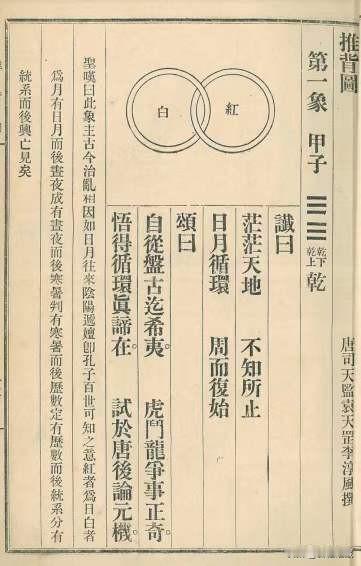 推背圖 唐司天監袁天罡李淳風撰
第一象 甲子 乾下乾上 乾
紅
白
讖曰
茫茫天地 不知所止
日月循環 周而復始
頌曰
自從盤古迄希夷 虎鬥龍爭事正奇。
悟得循環眞諦在 試於唐後論元機。
聖嘆曰此象主古今治亂相因如日月往來陰陽遞嬗卽孔子百世可知之意紅者爲日白者
爲月有日月而後晝夜成有晝夜而後寒暑判有寒暑而後歷數定有歷數而後統系分有
統系而後興亡見矣